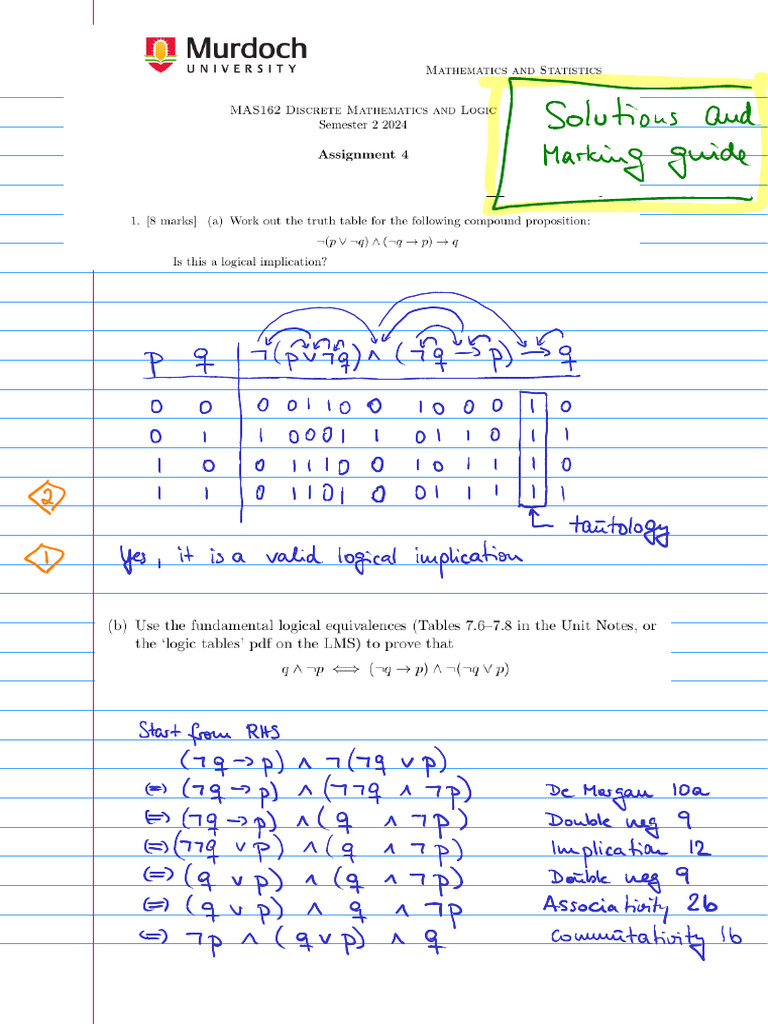 Murdoch
UNIVERSITY
MATHEMATICS AND STATISTICS
MAS162 DISCRETE MATHEMATICS AND LOGIC
Semester 2 2024
Assignment 4
Solutions and
Marking guide
1. [8 marks] (a) Work out the truth table for the following compound proposition:
¬(p ∨ ¬q) ∧ (¬q → p) → q
Is this a logical implication?
p q ¬(p ∨ ¬q) ∧ (¬q → p) → q
0 0 0 0 1 1 0 0 1 0 0 0 1 0
0 1 1 0 0 0 1 1 0 1 1 0 1 1
1 0 0 1 1 1 0 0 1 0 1 1 1 0
2 1 1 0 1 1 0 1 0 0 1 1 1 1 1
tautology
1 Yes, it is a valid logical implication
(b) Use the fundamental logical equivalences (Tables 7.6–7.8 in the Unit Notes, or
the ‘logic tables’ pdf on the LMS) to prove that
q ∧ ¬p ⟺ (¬q → p) ∧ ¬(¬q ∨ p)
Start from RHS
(¬q → p) ∧ ¬(¬q ∨ p)
⟺ (¬q → p) ∧ (¬¬q ∧ ¬p) De Morgan 10a
⟺ (¬q → p) ∧ (q ∧ ¬p) Double neg 9
⟺ (¬¬q ∨ p) ∧ (q ∧ ¬p) Implication 12
⟺ (q ∨ p) ∧ (q ∧ ¬p) Double neg 9
⟺ (q ∨ p) ∧ q ∧ ¬p Associativity 2b
⟺ ¬p ∧ (q ∨ p) ∧ q Commutativity 1b